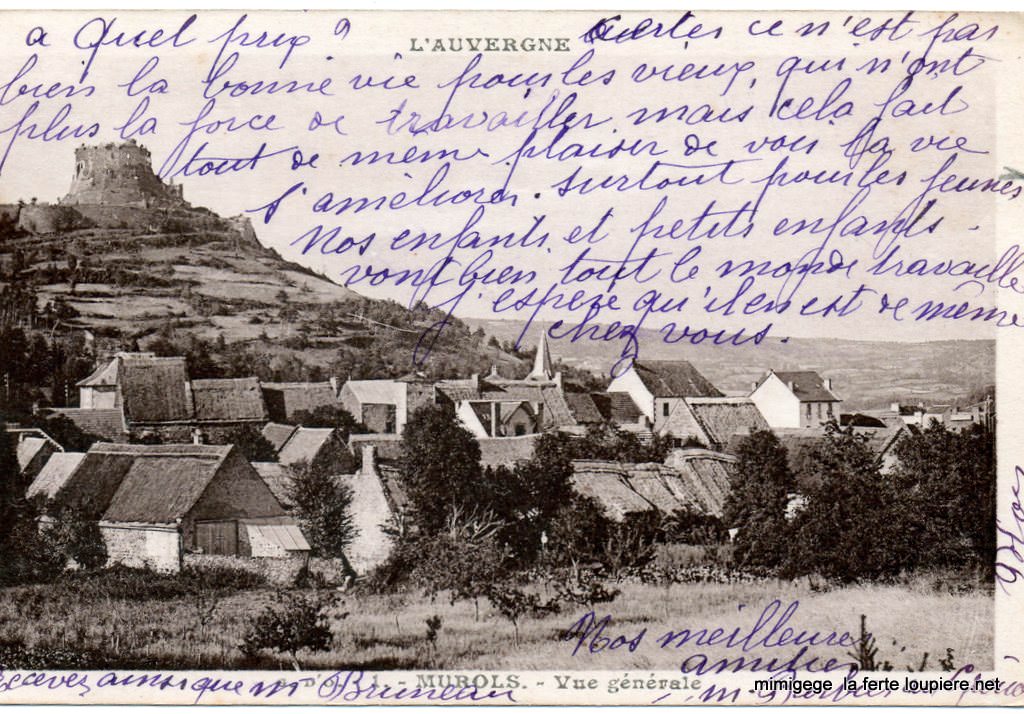 a quel prix ?
L'AUVERGNE
certes ce n'est pas
bien la bonne vie pour les vieux, qui n'ont
plus la force de travailler, mais cela fait
tout de même plaisir de voir la vie
s'améliorer. Surtout pour les jeunes
Nos enfants et petits enfants
vont bien tout le monde travaille
j'espère qu'il en est de même
chez vous.
Nos meilleures
amitiés
Recevez ainsi que Mr Bruneau
1. - MUROLS. - Vue générale
mimigege la ferte loupiere.net